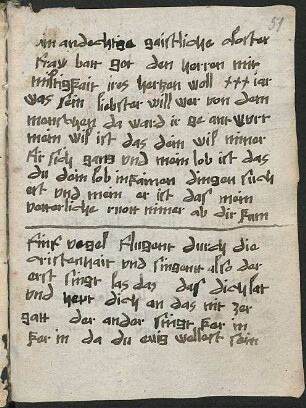 51
ain andechtige gaistliche closter
fraw batt got den herren mit
mittigkait ires hertzen woll xxx iar
was sein liebster will wer von dem
menschen da ward ir ge antwurt
mein wil ist das dein wil nimer
für sich gang vnd mein lob ist das
du dein lob in kainen dingen such
est vnd mein er ist das mein
vetterliche nimer ab dir kum
fünf vogel flugent durch die
cristenhait vnd singent also der
erst singt las das das dich lat
vnd heut dich an das nit zer
gatt der ander singt ker in
ker in da du ewig wellest sein